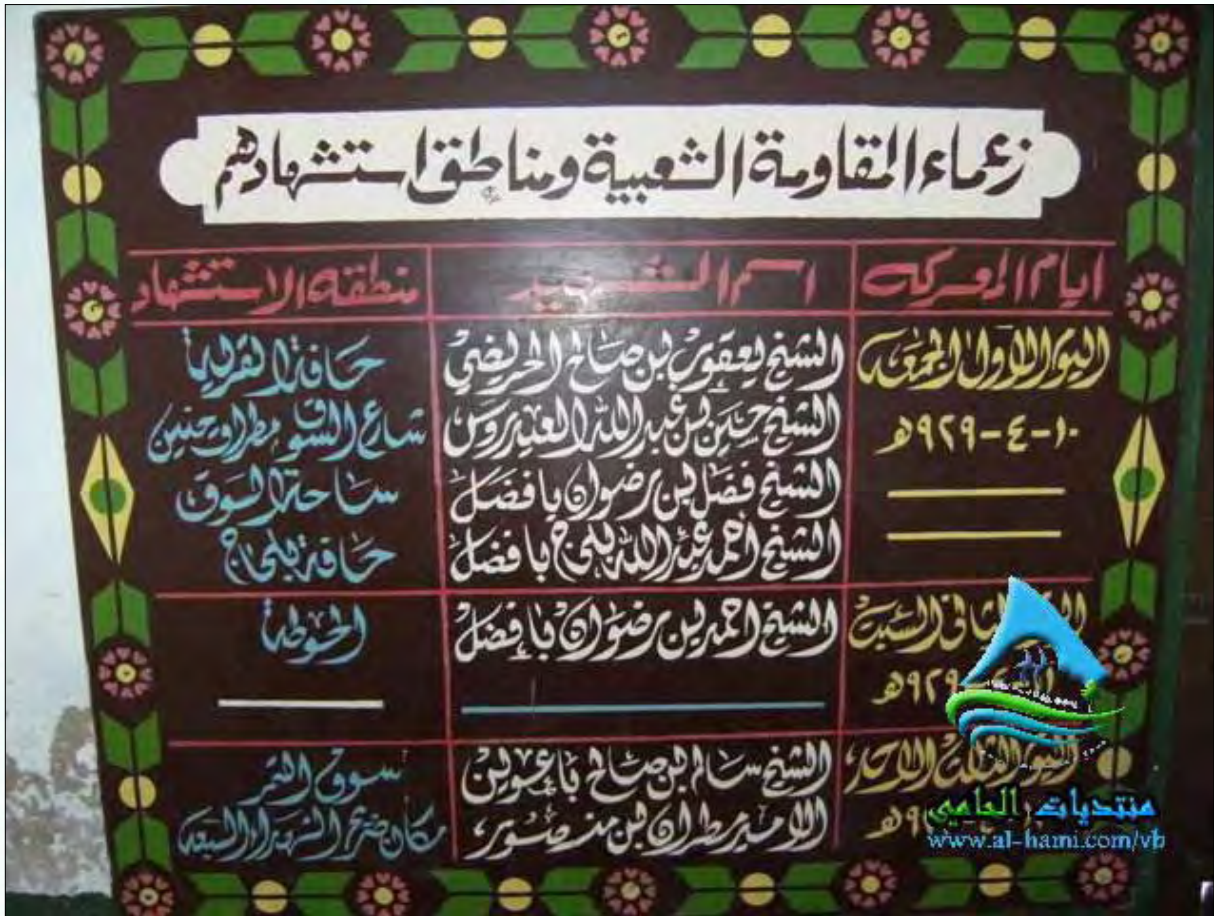 زعماء المقاومة الشعبية ومناطق استشهادهم
ايام المعركه اسم الشهيد منطقة الاستشهاد
اليوم الاول الجمعه الشيخ يعقوب بن صالح الحريضي حافة القرية
١٠-٤-٩٢٩هـ الشيخ حسين بن عبدالله العيدروس شارع السوق
الشيخ فضل بن رضوان بافضل ساحة السوق
الشيخ احمد عبدالله بلحاج بافضل حافة بلحاج
الثاني السبت الشيخ احمد بن رضوان بافضل الحوطة
٩٢٩هـ
اليوم الثالث الاحد الشيخ سالم بن صالح باعوين سوق التمر
الامير مطران بن منصور مكان ضريح الشهداء السبعه
منتديات الحامي
www.al-hami.com/vb